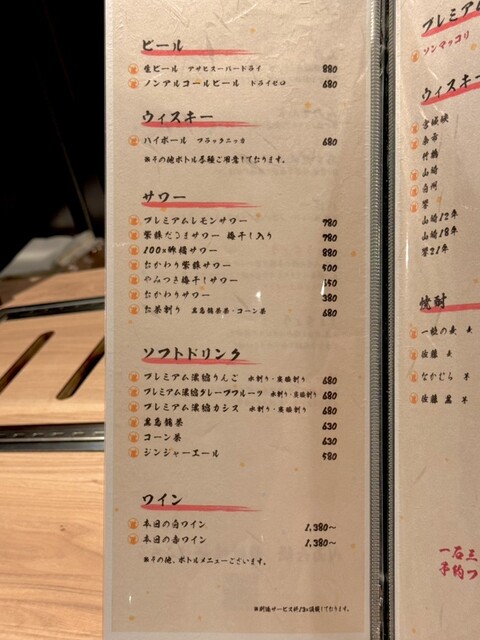 ビール
生ビール アサヒスーパードライ 880
ノンアルコールビール ドライゼロ 680
ウィスキー
ハイボール ブラックニッカ 680
※その他ボトル各種ご用意しております。
サワー
プレミアムレモンサワー 780
紫蘇だるまサワー 梅干し入り 780
100% サワー 880
おかわり紫蘇サワー 500
やみつき梅干しサワー
おかわりサワー 380
お茶割り 黒烏龍茶・コーン茶 680
ソフトドリンク
プレミアム濃縮りんご 水割り・炭酸割り 680
プレミアム濃縮グレープフルーツ 水割り・炭酸割り 680
プレミアム濃縮カシス 水割り・炭酸割り 680
黒烏龍茶 630
コーン茶 630
ジンジャーエール 580
ワイン
本日の白ワイン 1,380〜
本日の赤ワイン 1,380〜
※その他、ボトルメニューございます。
※別途サービス料13%頂戴しております。
プレミアム
ソンマッコリ
ウィスキー
宮城峡
余市
竹鶴
山崎
白州
響
山崎12年
山崎18年
響21年
焼酎
一粒の麦 麦
佐藤 麦
なかむら 米
佐藤 黒 芋
一石三
予約つ